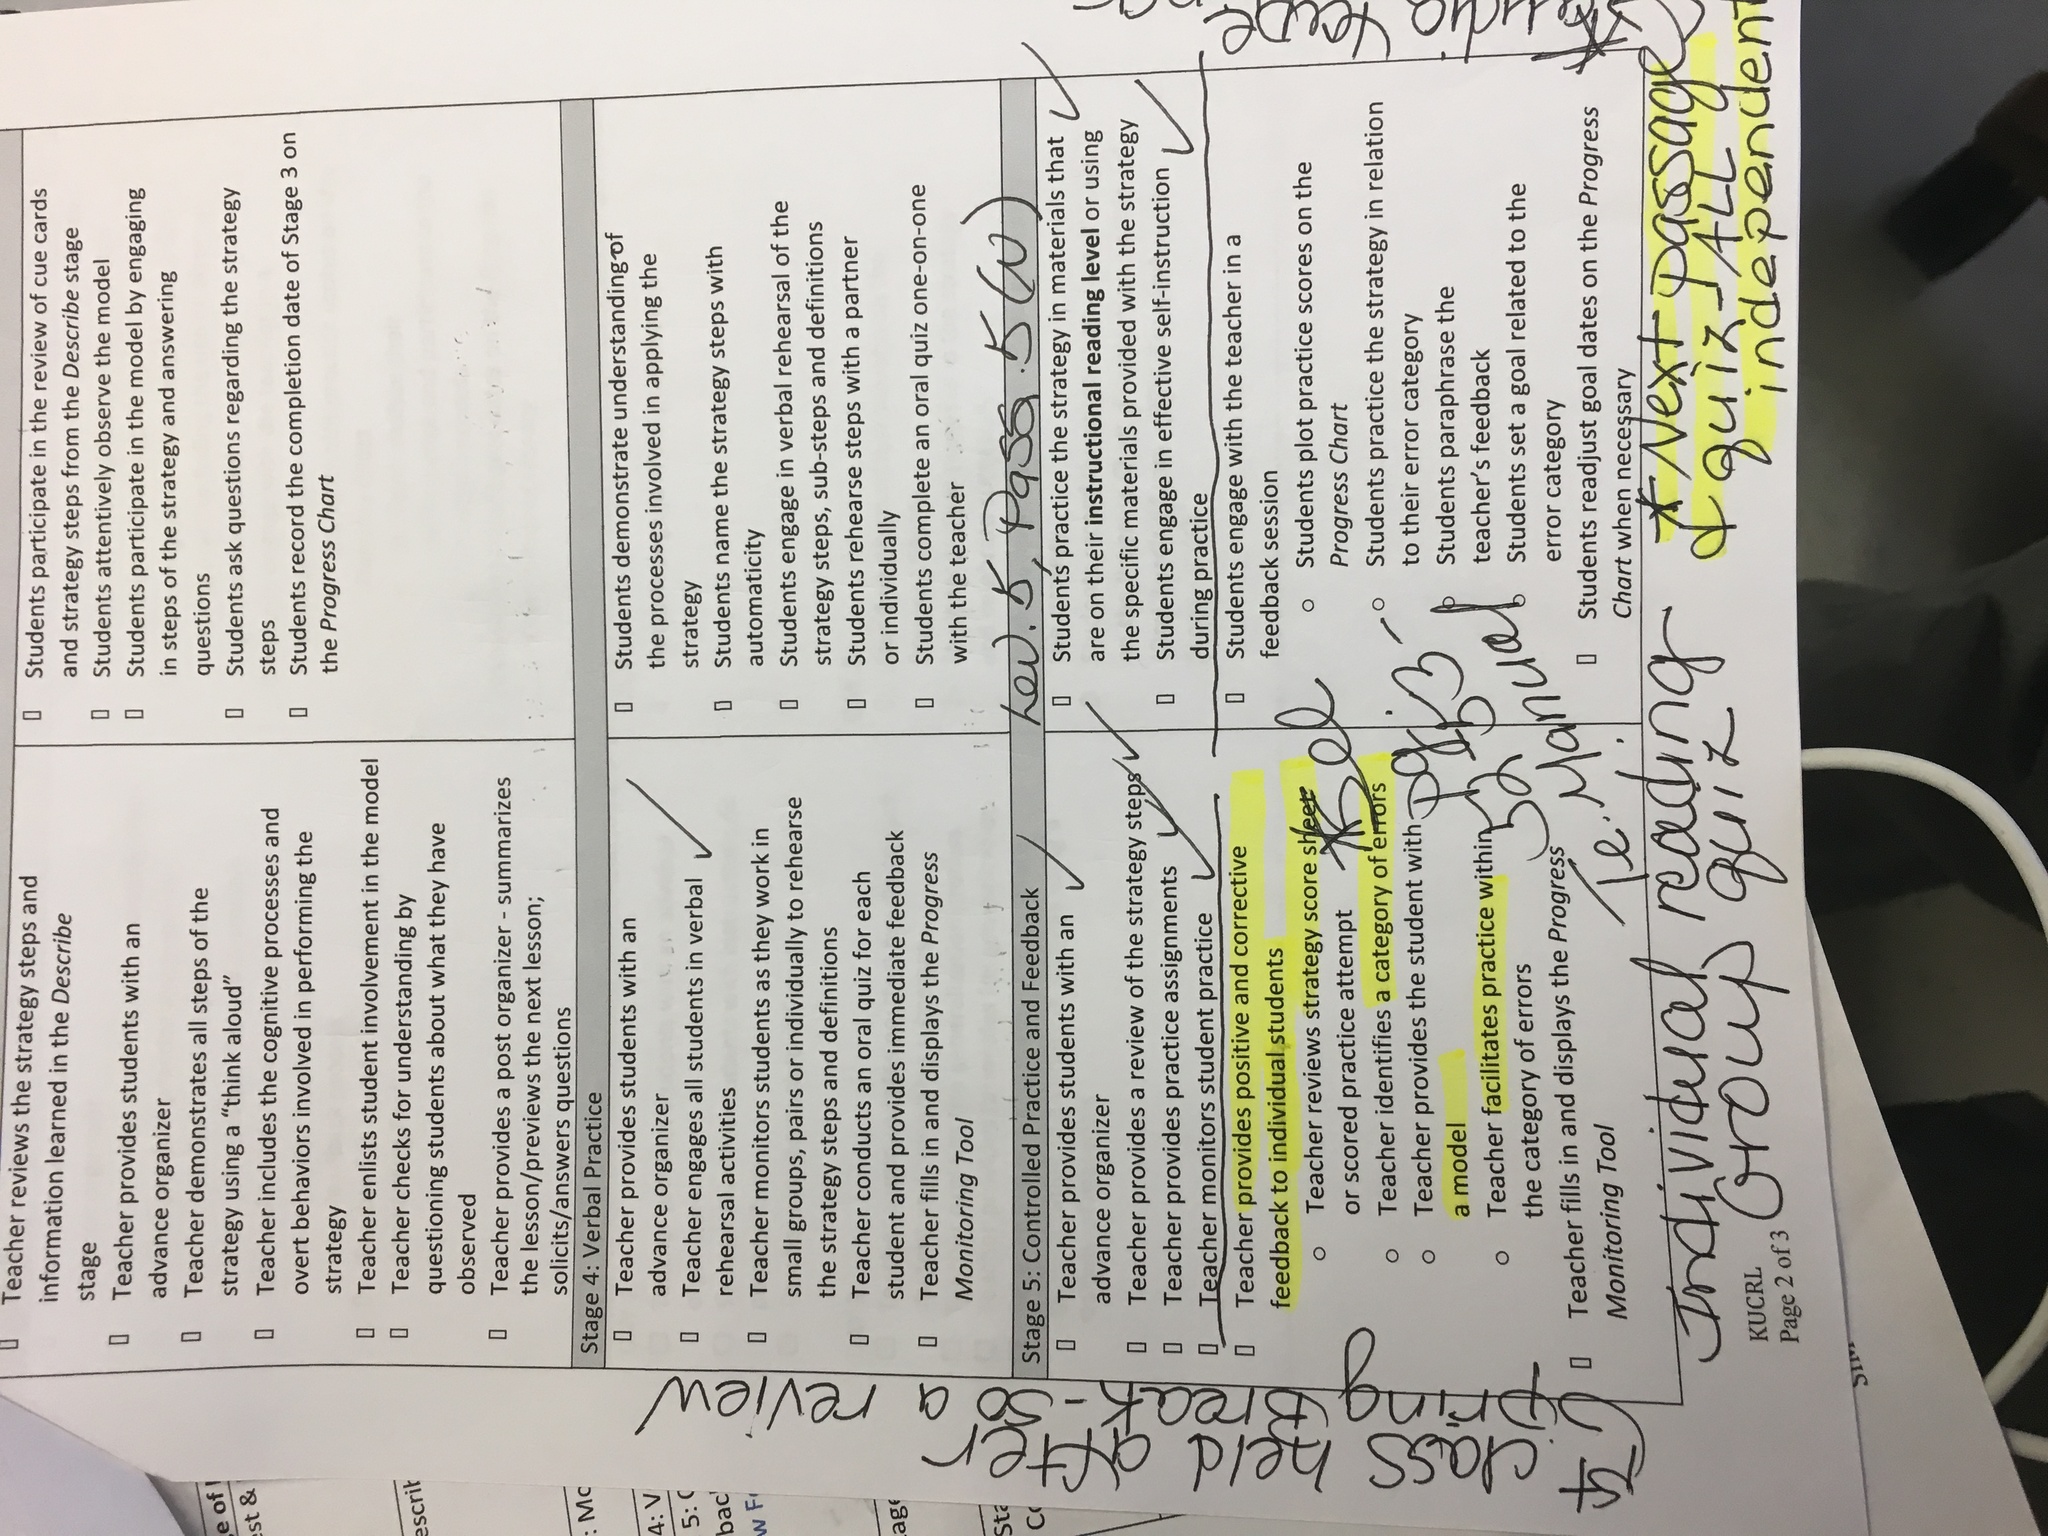 Teacher reviews the strategy steps and
information learned in the Describe
stage
Teacher provides students with an
advance organizer
Teacher demonstrates all steps of the
strategy using a "think aloud"
Teacher includes the cognitive processes and
overt behaviors involved in performing the
strategy
Teacher enlists student involvement in the model
Teacher checks for understanding by
questioning students about what they have
observed
Teacher provides a post organizer - summarizes
the lesson/previews the next lesson;
solicits/answers questions
Students participate in the review of cue cards
and strategy steps from the Describe stage
Students attentively observe the model
Students participate in the model by engaging
in steps of the strategy and answering
questions
Students ask questions regarding the strategy
steps
Students record the completion date of Stage 3 on
the Progress Chart
Stage 4: Verbal Practice
Teacher provides students with an
advance organizer
Teacher engages all students in verbal
rehearsal activities
Teacher monitors students as they work in
small groups, pairs or individually to rehearse
the strategy steps and definitions
Teacher conducts an oral quiz for each
student and provides immediate feedback
Teacher fills in and displays the Progress
Monitoring Tool
Students demonstrate understanding of
the processes involved in applying the
strategy
Students name the strategy steps with
automaticity
Students engage in verbal rehearsal of the
strategy steps, sub-steps and definitions
Students rehearse steps with a partner
or individually
Students complete an oral quiz one-on-one
with the teacher
Lev. 5, Pass. 5 (W)
Stage 5: Controlled Practice and Feedback
Teacher provides students with an
advance organizer
Teacher provides a review of the strategy steps
Teacher provides practice assignments
Teacher monitors student practice
Teacher provides positive and corrective
feedback to individual students
Teacher reviews strategy score sheet
or scored practice attempt
Teacher identifies a category of errors
Teacher provides the student with
a model
Teacher facilitates practice within
the category of errors
Teacher fills in and displays the Progress
Monitoring Tool
*See
pg.
Te. Manual
Students practice the strategy in materials that
are on their instructional reading level or using
the specific materials provided with the strategy
Students engage in effective self-instruction
during practice
Students engage with the teacher in a
feedback session
Students plot practice scores on the
Progress Chart
Students practice the strategy in relation
to their error category
Students paraphrase the
teacher's feedback
Students set a goal related to the
error category
Students readjust goal dates on the Progress
Chart when necessary
1st class held after
Spring Break - so a review
Individual reading
Group quiz
* Next Passage
& quiz ALL
independent
KUCRL
Page 2 of 3